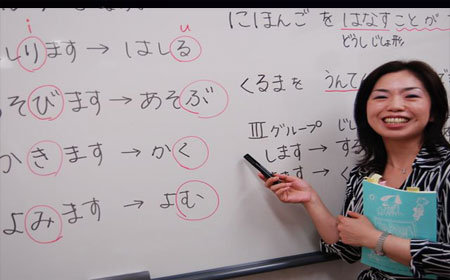 i u
します → はしる
そびます → あそぶ
かきます → かく
よみます → よむ
にほんご を はなす ことが
どうしじしょ形
くるまを うんて
Ⅲ グループ じ
します → す
ます → く